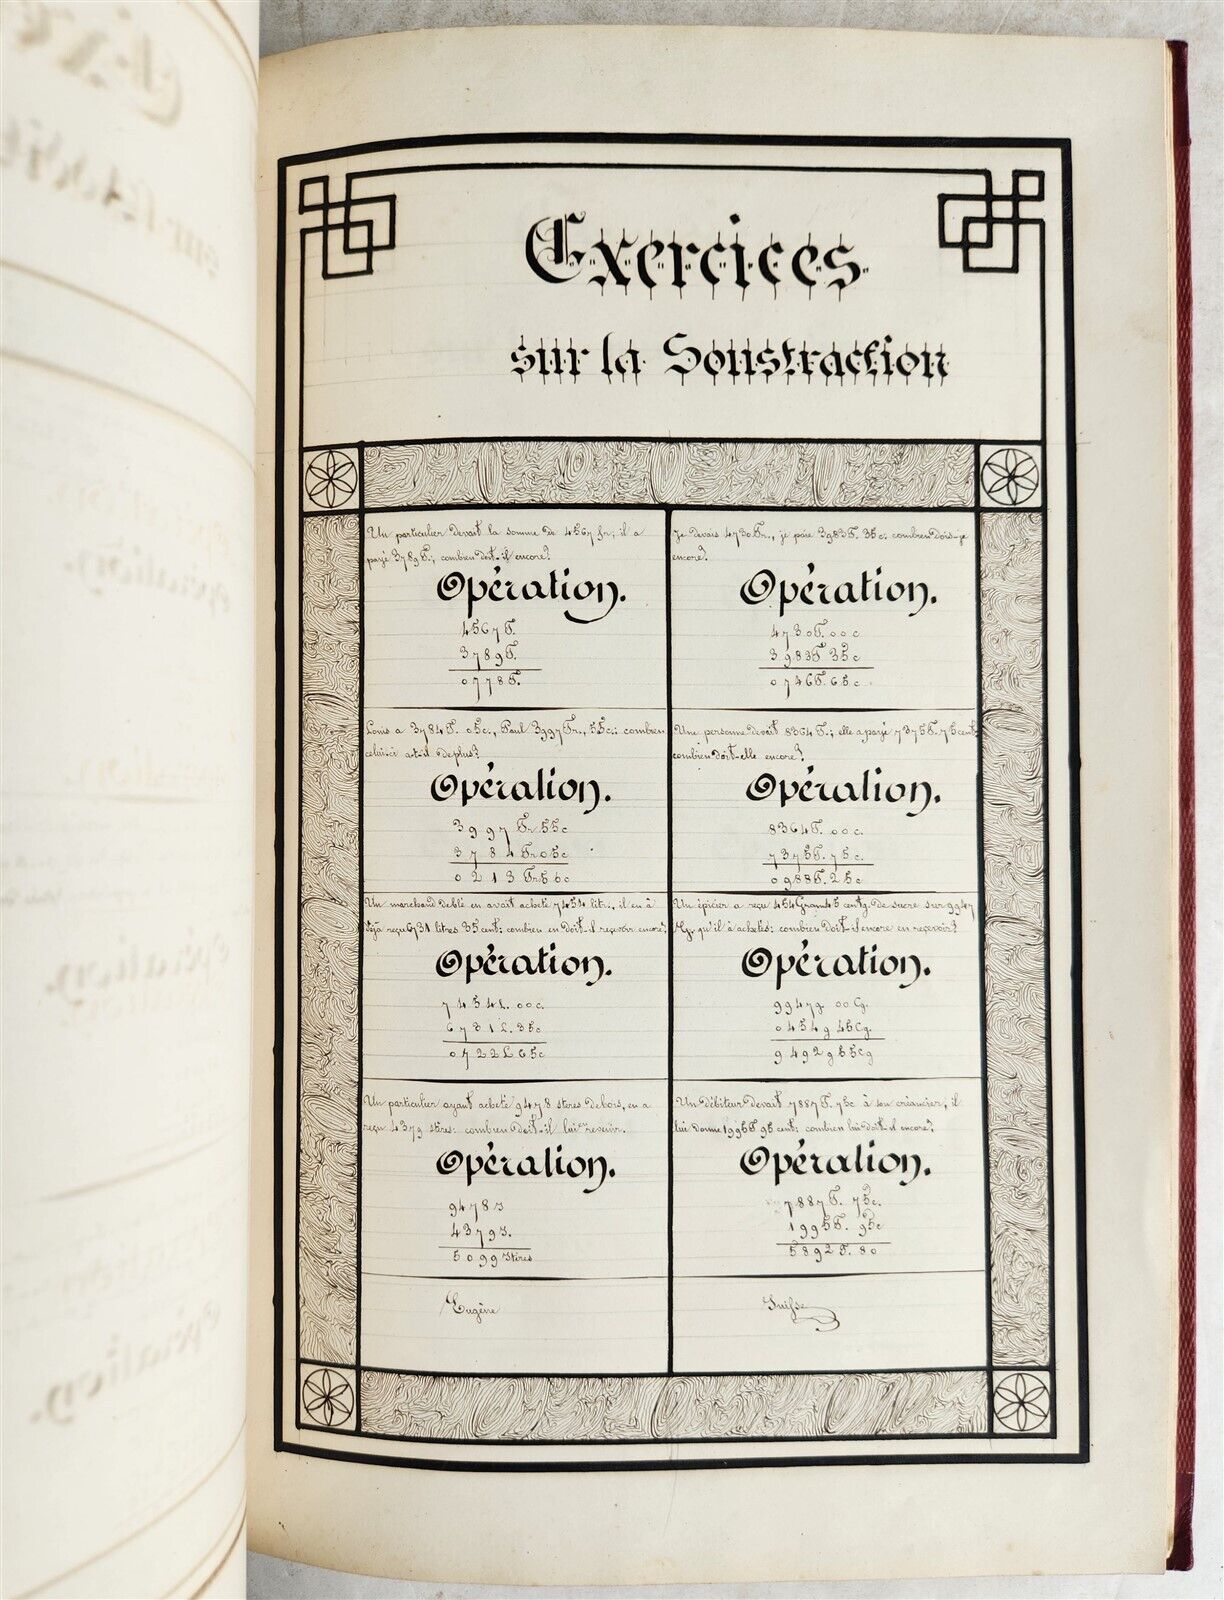 Exercices
sur la Soustraction
Un particulier devait la somme de 4567 fr; il a
payé 3789 F.; combien doit-il encore?
Opération.
4567 F.
3789 F.
0778 F.
Je devais 4730 Fr., je paie 3983 F. 35c; combien dois-je
encore?
Opération.
4730 F. 00c
3983 F 35c
0746 F. 65c
Louis a 3784 F. 05c., Paul 3997 Fr., 55c.: combien
celui-ci a-t-il de plus?
Opération.
3997 Fr 55c
3784 Fr 05c
0213 Fr 50c
Une personne devait 8364 F.; elle a payé 7375 F. 75 cent
combien doit-elle encore?
Opération.
8364 F. 00c.
7375 F. 75c.
0988 F. 25c
Un marchand de blé en avait acheté 7454 litr., il en à
déjà reçu 6731 litres 35 cent: combien en doit-il reçevoir encore?
Opération.
7454 L. 00c.
6731 L. 35c
0722 L 65c
Un épicier a reçu 454 Gram 45 centg. de sucre sur 9947
qu'il à achetés: combien doit-il encore en reçevoir?
Opération.
9947 g. 00 Cg.
0454 g 45 Cg.
9492 g 55 Cg
Un particulier ayant acheté 9478 stères de bois, en a
reçu 4379 stères: combien doit-il lui en revenir.
Opération.
9478 s
4379 s.
5099 stères
Un Débiteur devait 7887 F. 75c à son créancier, il
lui donne 1995 F 95 cent: combien lui doit-il encore?
Opération.
7887 F. 75c.
1995 F. 95c
5892 F. 80
Eugène
Suisse